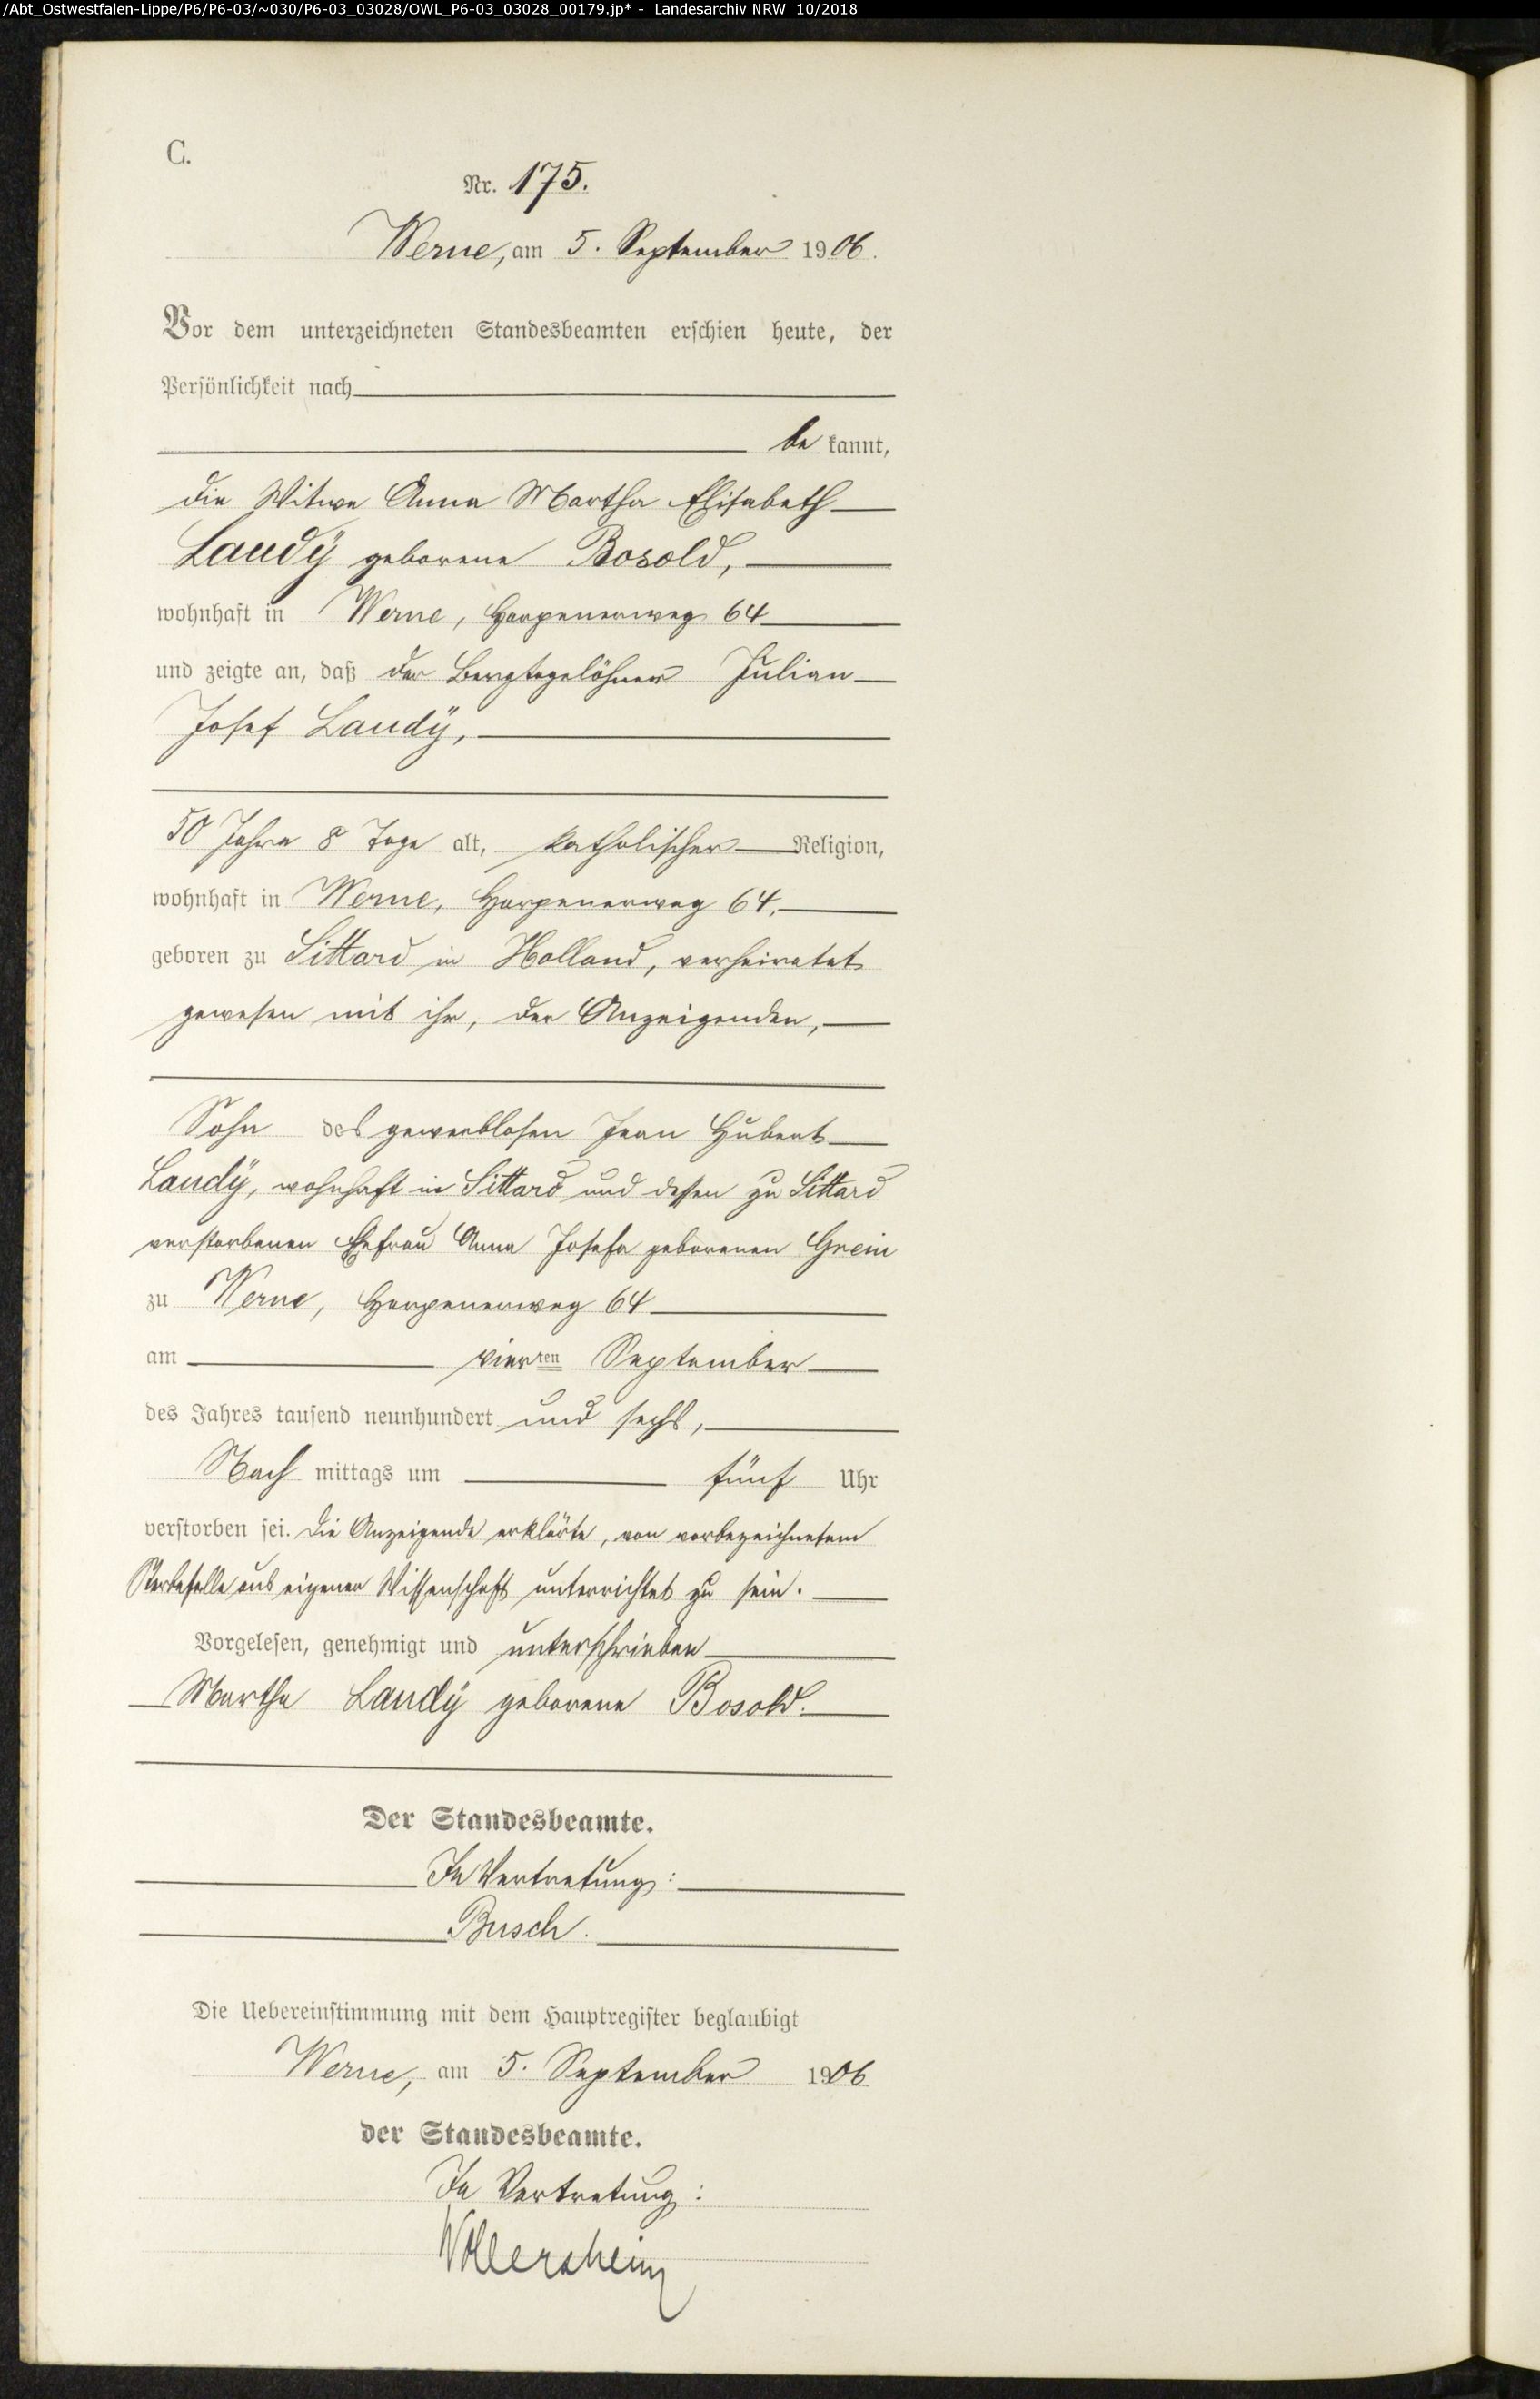 /Abt_Ostwestfalen-Lippe/P6/P6-03/~030/P6-03_03028/OWL_P6-03_03028_00179.jp* - Landesarchiv NRW 10/2018
C.
Nr. 175.
Werne, am 5. September 1906.
Vor dem unterzeichneten Standesbeamten erschien heute, der
Persönlichkeit nach
be kannt,
die Witwe Anna Martha Elisabeth
Laudÿ geborene Bosold,
wohnhaft in Werne, Harpenerweg 64
und zeigte an, daß der Bergtagelöhner Julian
Josef Laudÿ,
50 Jahre 8 Tage alt, katholischer Religion,
wohnhaft in Werne, Harpenerweg 64,
geboren zu Sittard in Holland, verheiratet
gewesen mit ihr, der Anzeigenden,
Sohn des gewerblosen Jean Hubert
Laudÿ, wohnhaft in Sittard und dessen zu Sittard
verstorbenen Ehefrau Anna Josefa geborenen Grein
zu Werne, Harpenerweg 64
am vierten September
des Jahres tausend neunhundert und sechs,
Nach mittags um fünf Uhr
verstorben sei. Die Anzeigende erklärte, von vorbezeichnetem
Sterbefalle aus eigener Wissenschaft unterrichtet zu sein.
Vorgelesen, genehmigt und unterschrieben
Martha Laudÿ geborene Bosold.
Der Standesbeamte.
In Vertretung:
Busch.
Die Uebereinstimmung mit dem Hauptregister beglaubigt
Werne, am 5. September 1906
der Standesbeamte.
In Vertretung:
Vollersheim